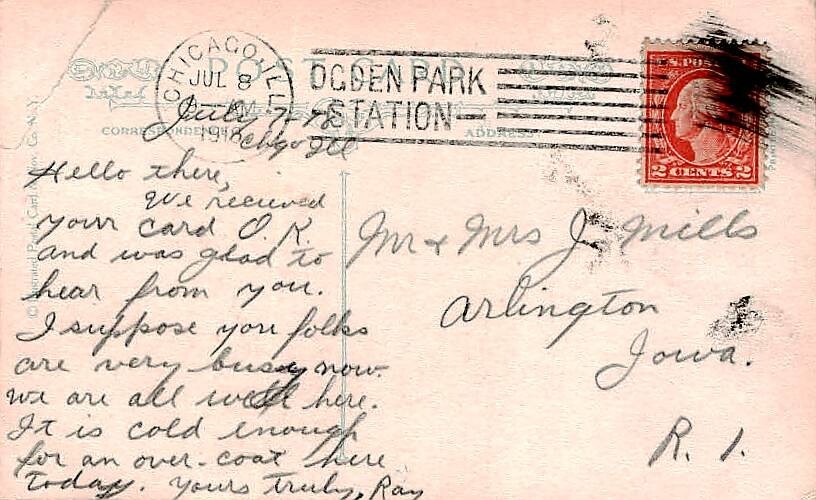 POST CARD
CHICAGO, ILL.
JUL 8
1918
OGDEN PARK
STATION
U.S. POSTAGE
2 CENTS 2
CORRESPONDENCE
ADDRESS
July 7-18
Chgo Ill
Hello there,
We recieved
your card O.K.
and was glad to
hear from you.
I suppose you folks
are very busy now.
we are all well here.
It is cold enough
for an over-coat here
today. Yours truly, Ray
Mr & Mrs J. Mills
Arlington
Iowa.
R. 1.